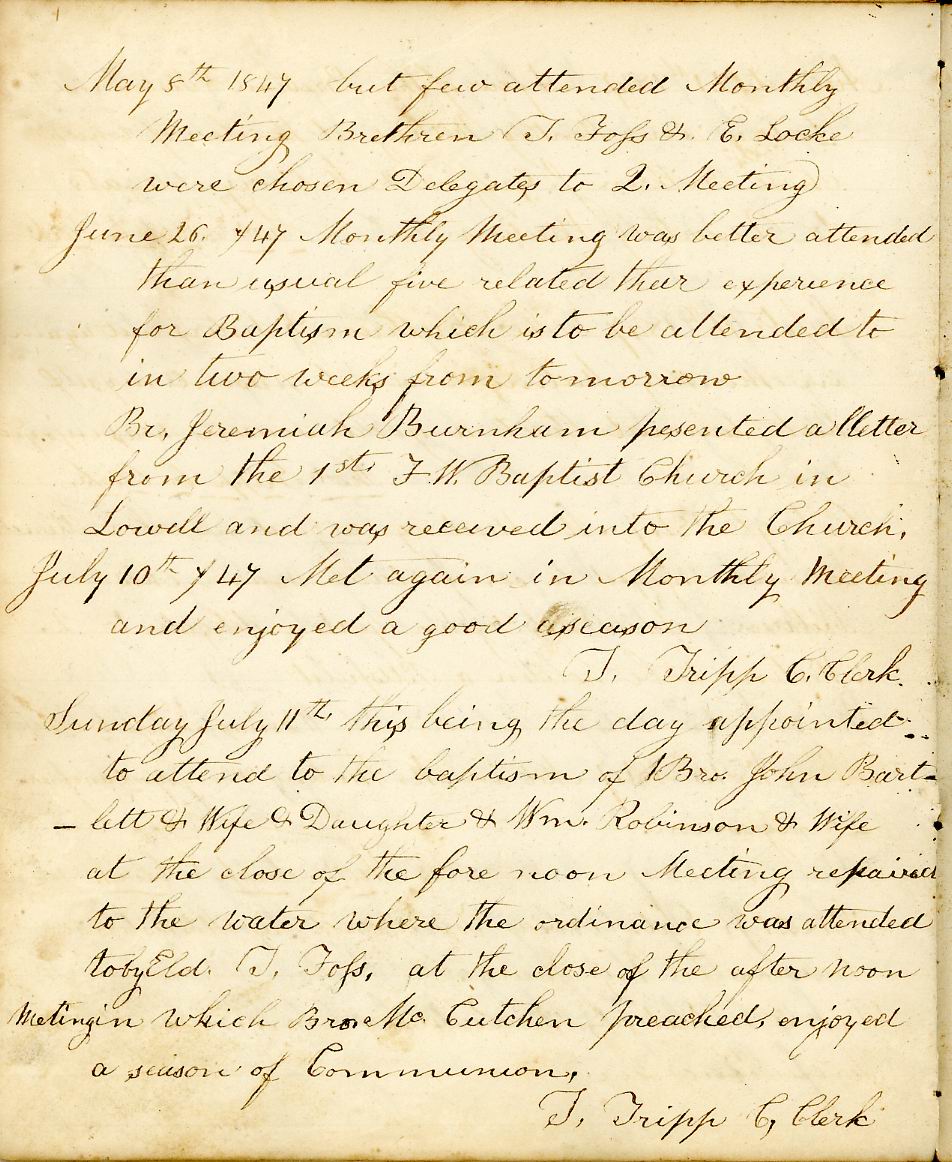 May 8th 1847 but few attended Monthly
Meeting Brethren T. Foss & E. Locke
were chosen Delegates to Q. Meeting
June 26. /47 Monthly Meeting was better attended
than usual five related thur experience
for Baptism which is to be attended to
in two weeks from tomorrow
Br. Jeremiah Burnham pesented a letter
from the 1st F. W. Baptist Church in
Lowell and was received into the Church.
July 10th /47 Met again in Monthly Meeting
and enjoyed a good season
T. Tripp C. Clerk.
Sunday July 11th this being the day appointed
to attend to the baptism of Bro. John Bart-
-lett & Wife & Daughter & Wm. Robinson & Wife
at the close of the fore noon Meeting repaired
to the water where the ordinance was attended
to by Eld. T. Foss, at the close of the after noon
Meting in which Bro Mc Cutchen preached, enjoyed
a season of Communion,
T. Tripp C, Clerk